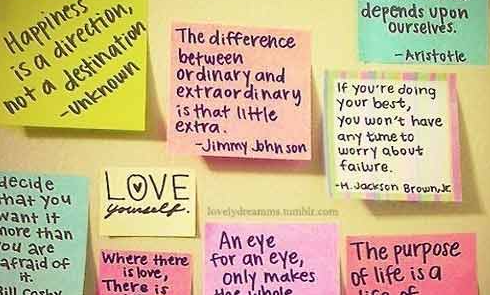 Happiness
is a direction,
not a destination
-unknown
The difference
between
ordinary and
extraordinary
is that little
extra.
-Jimmy Johnson
depends upon
ourselves.
-Aristotle
If you're doing
your best,
you won't have
any time to
worry about
failure.
-H. Jackson Brown, Jr.
decide
that you
want it
more than
you are
afraid of
it.
Bill Cosby
LOVE
yourself.
lovelydreamms.tumblr.com
There
is love,
There is
An eye
for an eye,
only makes
the whole
The purpose
of life is a
life of